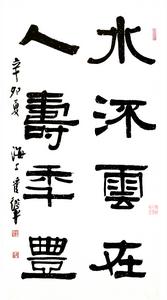 水流雲在
人壽年豐
辛卯夏 海上